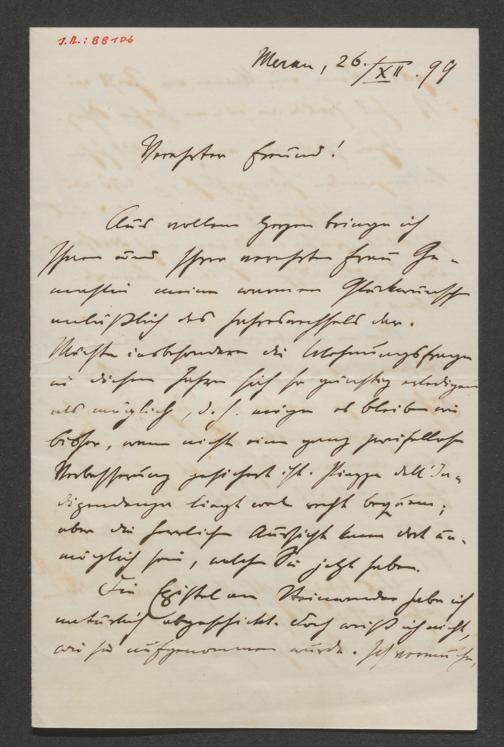 I.N.: 88106
Meran, 26./XII. 99
Verehrter Freund!
Aus vollem Herzen bringe ich
Ihnen und Ihrer verehrten Frau Ge-
mahlin meine warmen Glückwünsche
anläßlich des Jahreswechsels dar.
Möchte insbesondere die Wohnungsfrage
in diesem Jahre sich so günstig erledigen
als möglich, d. h. möge es bleiben wie
bisher, wenn nicht eine ganz zweifellose
Verbesserung gesichert ist. Piazza dell'In-
dipendenza liegt wol recht bequem;
aber die herrliche Aussicht kann dort un-
möglich sein, welche Sie jetzt haben.
Die Epistel an Steinwender habe ich
natürlich abgeschickt. Doch weiß ich nicht,
wie sie aufgenommen wurde. Ich vermuthe,